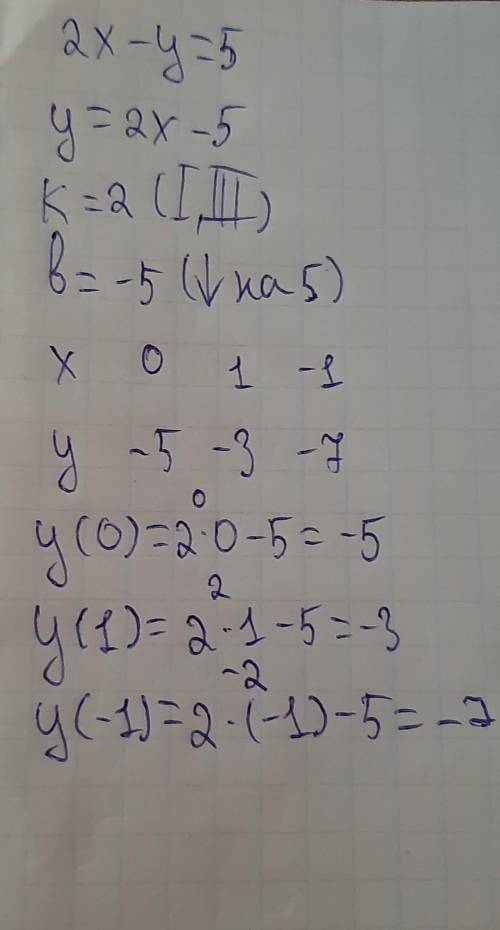 2x - y = 5
y = 2x - 5
к = 2 (I, III)
в = -5 (↓ на 5)
x 0 1 -1
y -5 -3 -7
0
y(0) = 2·0 - 5 = -5
2
y(1) = 2·1 - 5 = -3
-2
y(-1) = 2·(-1) - 5 = -7